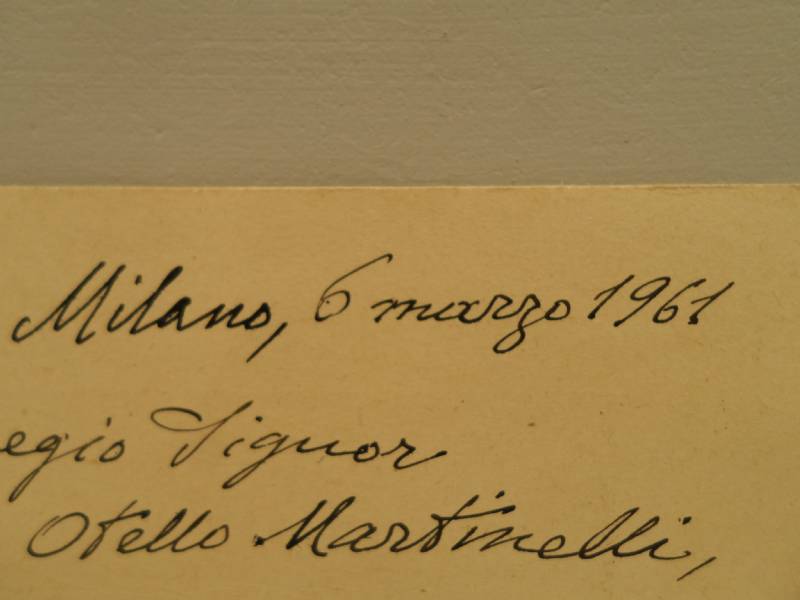 Milano, 6 marzo 1961
egio Signor
Otello Martinelli,